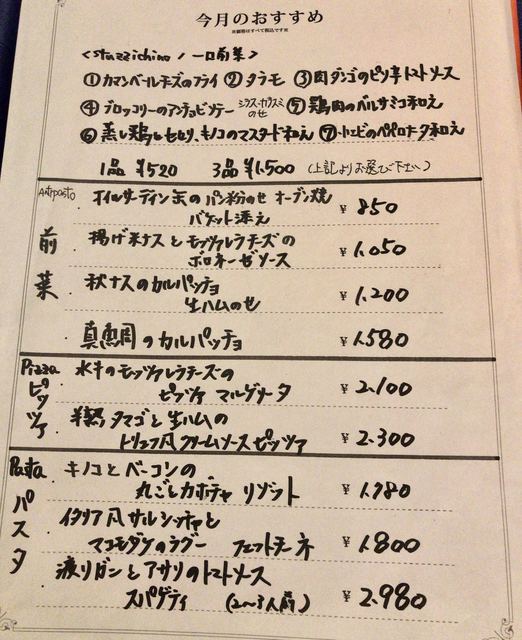 今月のおすすめ
※価格はすべて税込です※
<stuzzichino / 一口前菜>
①カマンベールチーズのフライ ②タラモ ③肉ダンゴのピリ辛トマトソース
④ブロッコリーのアンチョビソテー シラス・カラスミのせ ⑤鶏肉のバルサミコ和え
⑥蒸し鶏とセロリ、キノコのマスタード和え ⑦小エビのペペロナータ和え
1品 ¥520 3品 ¥1,500 (上記よりお選び下さい)
Antipasto
前菜
オイルサーディン缶のパン粉のせ オーブン焼
バケット添え ¥850
揚げ米ナスとモッツァレラチーズの
ボロネーゼソース ¥1,050
秋ナスのカルパッチョ
生ハムのせ ¥1,200
真鯛のカルパッチョ ¥1,580
Pizza
ピッツァ
水牛のモッツァレラチーズの
ピッツァ マルゲリータ ¥2,100
半熟タマゴと生ハムの
トリュフ風クリームソースピッツァ ¥2,300
Pasta
パスタ
キノコとベーコンの
丸ごとカボチャ リゾット ¥1,980
イタリア風サルシッチャと
マコモダケのラグー フェットチーネ ¥1,800
渡りガニとアサリのトマトソース
スパゲティ (2〜3人前) ¥2,980